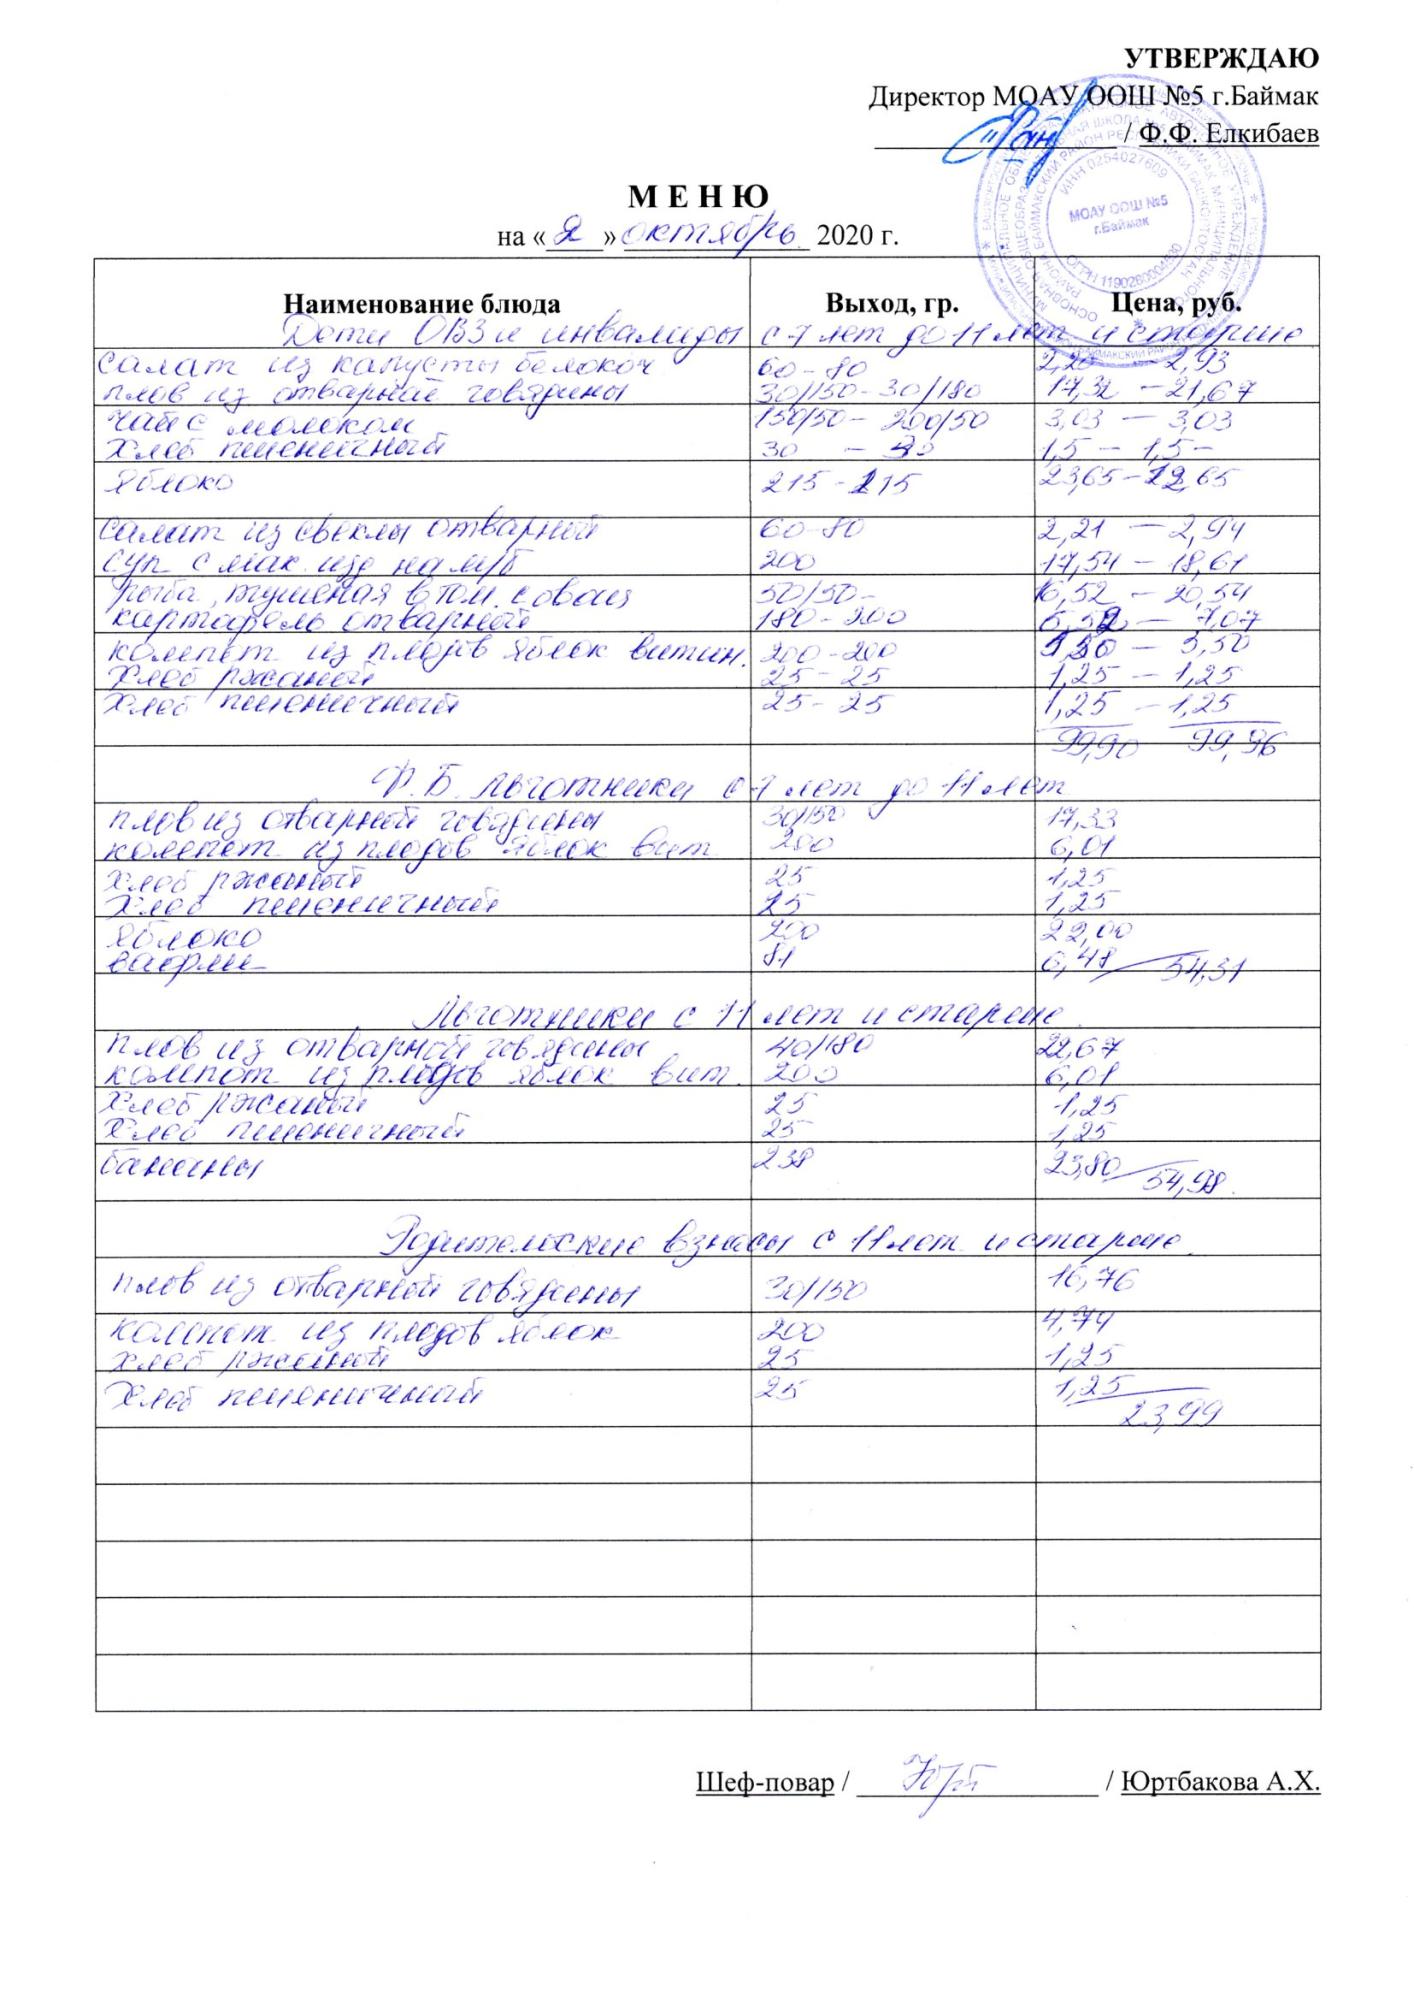 УТВЕРЖДАЮ
Директор МОАУ ООШ №5 г.Баймак
/ Ф.Ф. Елкибаев
МОАУ ООШ №5
г.Баймак
ИНН 0254027609
М Е Н Ю
на «2» октябрь 2020 г.
Наименование блюда Выход, гр. Цена, руб.
Дети ОВЗ и инвалиды с 7 лет до 11 лет и старше
салат из капусты белокоч 60-80 2,93
плов из отварной говядины 30/150-30/180 17,32 - 21,67
чай с молоком 150/50- 200/50 3,03 - 3,03
хлеб пшеничный 30 - 1,5 - 1,5-
яблоко 215- 115 23,65-12,65
салат из свеклы отварной 60-80 2,21 - 2,94
суп с мак. изд на м/б 200 17,54 - 18,61
рыба, тушеная в том. с овощ 50/50- 16,52 - 20,54
картофель отварной 180-200 6,52 - 7,07
компот из плодов яблок витам. 200-200 - 5,50
хлеб ржаной 25-25 1,25 - 1,25
хлеб пшеничный 25-25 1,25 - 1,25
99,90 99,96
Ф.Б. льготники с 7 лет до 11 лет
плов из отварной говядины 30/150 17,33
компот из плодов яблок вит. 200 6,01
хлеб ржаной 25 1,25
хлеб пшеничный 25 1,25
яблоко 200 22,00
вафли 81 6,48 54,31
Льготники с 11 лет и старше.
плов из отварной говядины 40/180 22,67
компот из плодов яблок вит. 200 6,01
хлеб ржаной 25 1,25
хлеб пшеничный 25 1,25
бананы 238 23,80 54,98.
Родительские взносы с 11 лет и старше.
плов из отварной говядины 30/150 16,76
компот из плодов яблок 200 4,74
хлеб ржаной 25 1,25
хлеб пшеничный 25 1,25
23,99
Шеф-повар / / Юртбакова А.Х.